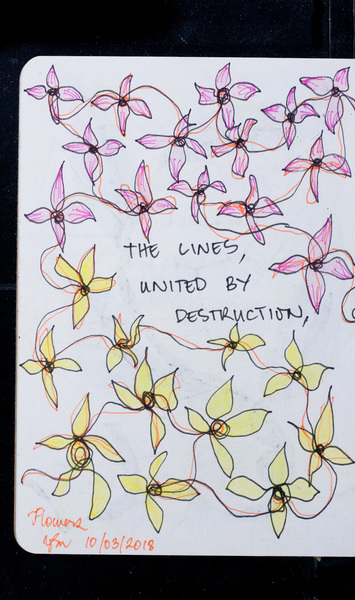 THE LINES,
UNITED BY
DESTRUCTION,
Flowers
10/03/2018